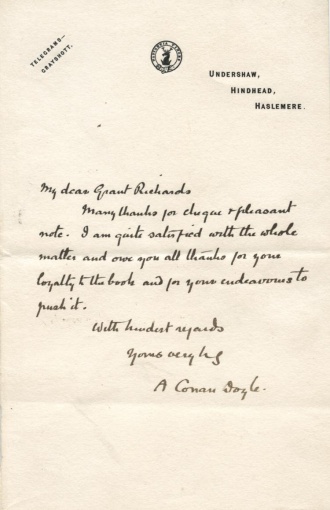 TELEGRAMS—
GRAYSHOTT.
UNDERSHAW,
HINDHEAD,
HASLEMERE.
My dear Grant Richards
Many thanks for cheque & pleasant
note. I am quite satisfied with the whole
matter and owe you all thanks for your
loyalty to the book and for your endeavours to
push it.
With kindest regards
Yours very
A Conan Doyle.